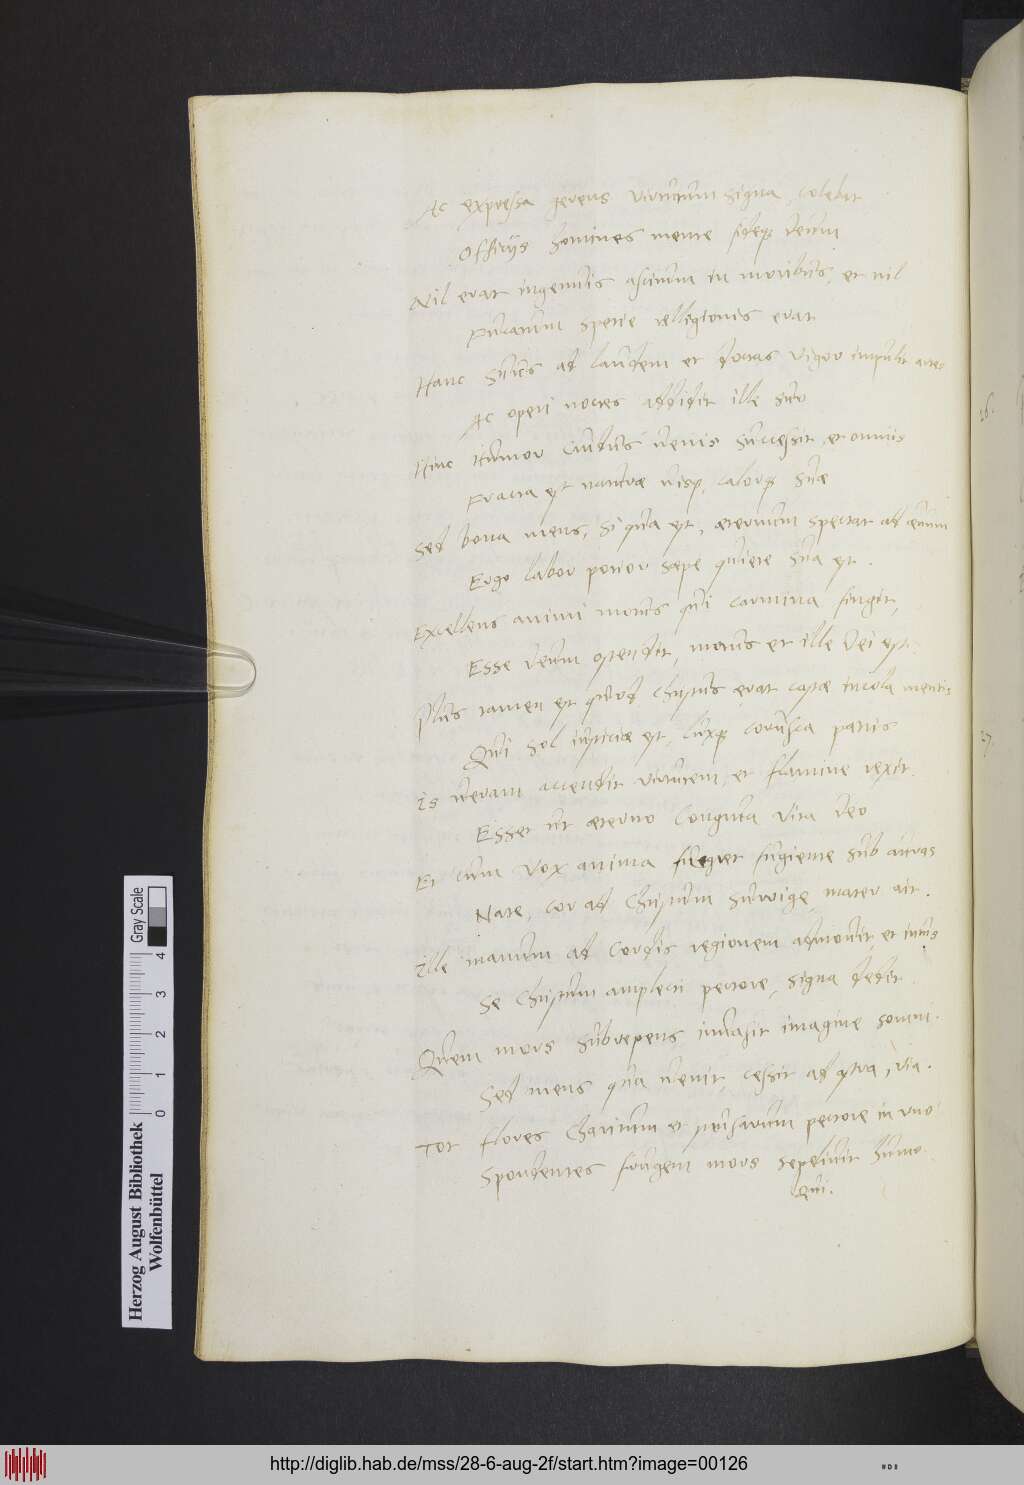 Ac expressa gerens virtutum signa, colebat
Officijs homines mente fideq; deum
Nil erat ingenuis ascitum in moribus, et nil
Fucatum specie relligionis erat
Hanc suus ad laudem et doctas vigor impulit artes
Ac operi noctes addidit ille suo
Hinc tumor cutis venis successit, et omnis
Fracta est naturæ visq; calorq; suæ
Sed bona mens, si qua est, æternum spectat ad ævum
Ergo labor potior sæpe quiete sua est.
Excellens animi motus qui carmina fingit,
Esse deum ostendit, motus et ille Dei est.
Plus tamen est quod Christus erat castæ incola mentis
Qui sol iusticiæ est, luxq; corusca patris
Is veram accendit virtutem, et flamine rexit.
Esset ut æterno coniuncta vita deo
Et cum vox anima fugiente sub auras
Nate, cor ad Christum surrige, mater ait.
Ille manum ad cordis regionem admovit, et intus
Se Christum amplecti pectore, signa dedit.
Quem mors subrepens invasit imagine somni.
Sed mens qua venit, cessit ad astra, via.
Tot flores charitum et musarum pectore in uno
Spondentes frugem mors sepelivit humo.
Qui.
26.
27.
Herzog August Bibliothek
Wolfenbüttel
0 1 2 3 4
Gray Scale
http://diglib.hab.de/mss/28-6-aug-2f/start.htm?image=00126